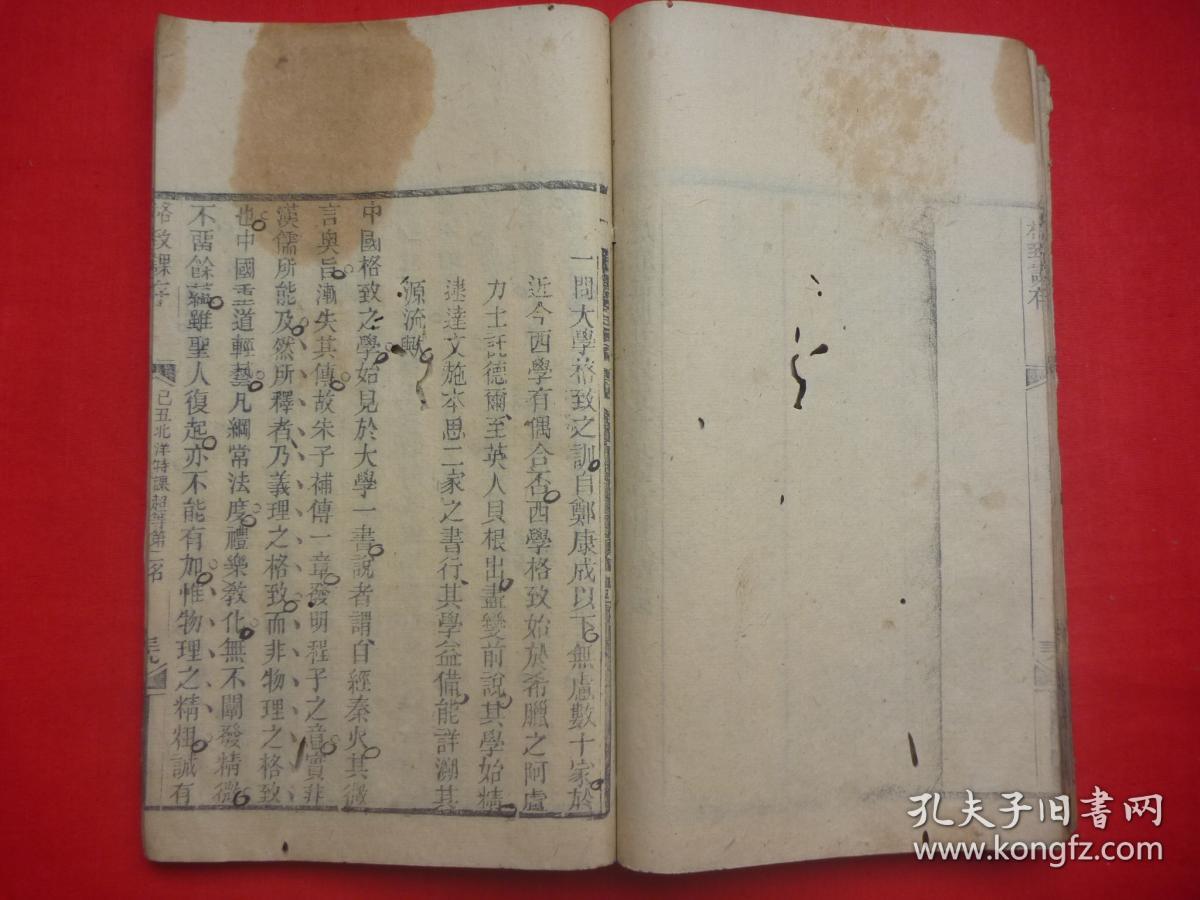 一問大學格致之訓自鄭康成以下無慮數十家於
近今西學有偶合否西學格致始於希臘之阿盧
力士託德爾至英人貝根出盡變前說其學始精
逮達文施本思二家之書行其學益備能詳溯其
源流歟
中國格致之學始見於大學一書說者謂自經秦火其微
言奧旨漸失其傳故朱子補傳一章發明程子之意實非
漢儒所能及然所釋者乃義理之格致而非物理之格致
也中國重道輕藝凡綱常法度禮樂教化無不闡發精微
不留餘蘊雖聖人復起亦不能有加惟物理之精粗誠有
格致課存
己丑北洋特課超等第二名
孔夫子旧书网
www.kongfz.com